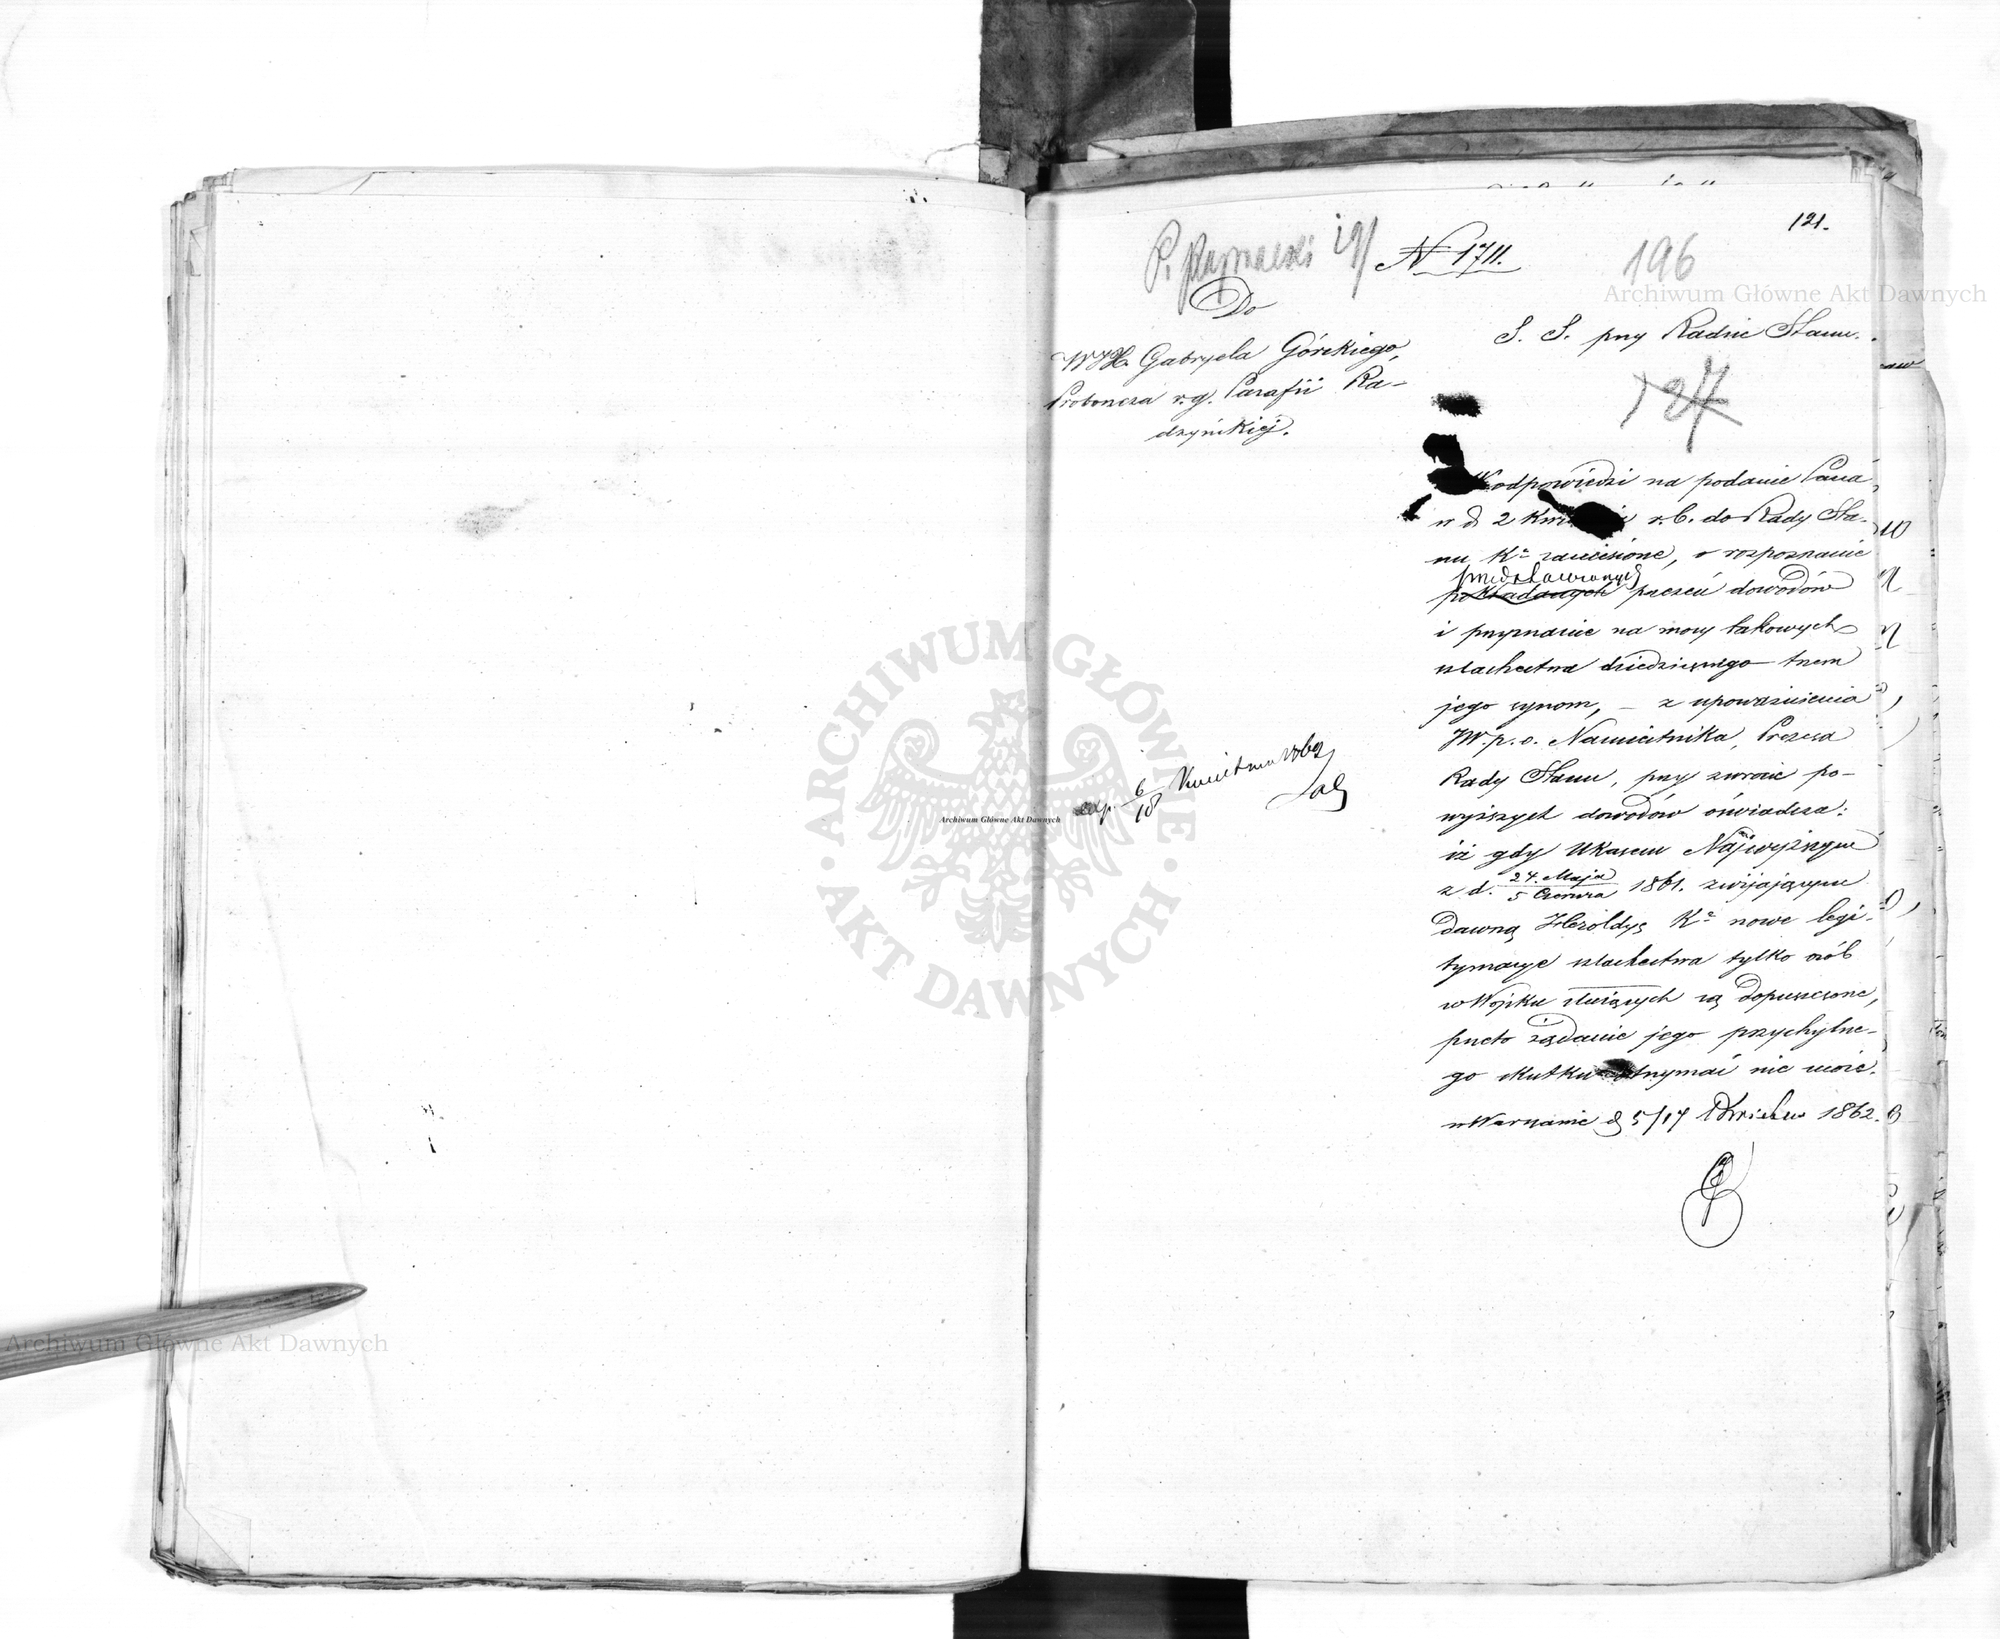 121.
196
N 1711.
Do
WJX. Gabryela Górskiego,
Proboszcza r.g. Parafii Ra-
dzyńskiej.
S. S. przy Radzie Stanu.
127
W odpowiedzi na podanie Pana,
w d. 2 Kwietnia r.b. do Rady Sta-
nu K. zaniesione, o rozpoznanie
przedstawionych
pokładanych przezeń dowodów
i przyznanie na mocy takowych
szlachectwa dziedzicznego trzem
jego synom, – z upoważnienia
JW. p. o. Namiestnika, Prezesa
Rady Stanu, przy zwrocie po-
wyższych dowodów oświadcza:
iż gdy Ukazem Najwyższym
z d. 24. Maja / 5 Czerwca 1861. zwijającym
dawną Heroldyą K. nowe legi-
tymacye szlachectwa tylko osób
w Wojsku służących są dopuszczone,
przeto żądanie jego przychylne-
go skutku otrzymać nie może.
w Warszawie d. 5/17 Kwietnia 1862.
exp. 6/18 Kwietnia 1862
Archiwum Główne Akt Dawnych
ARCHIWUM GŁÓWNE · AKT DAWNYCH ·
Archiwum Główne Akt Dawnych
Archiwum Główne Akt Dawnych